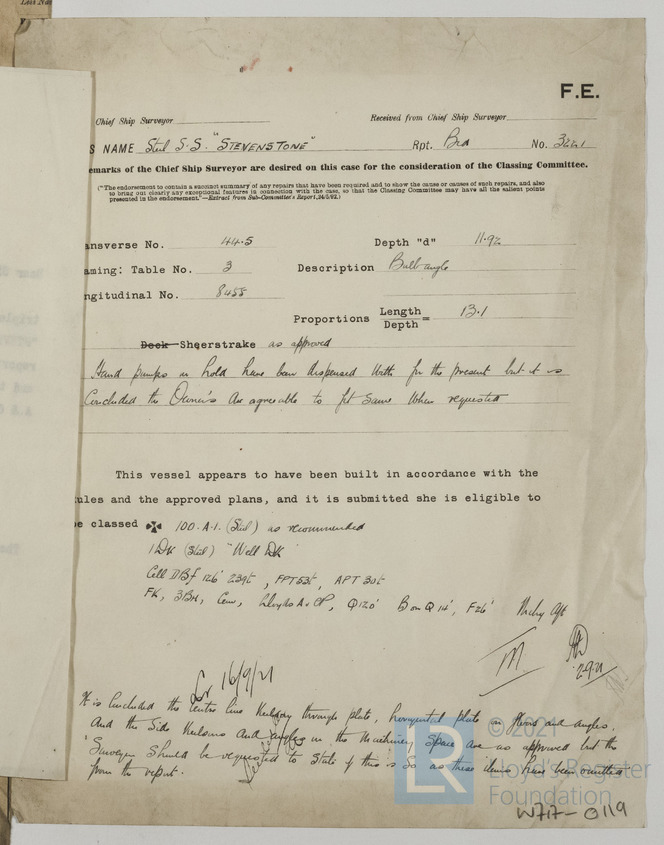 F.E.
Chief Ship Surveyor
Received from Chief Ship Surveyor
S NAME Steel S.S. "STEVENSTONE" Rpt. No. 3221
emarks of the Chief Ship Surveyor are desired on this case for the consideration of the Classing Committee.
("The endorsement to contain a succinct summary of any repairs that have been required and to show the cause or causes of such repairs, and also
to bring out clearly any exceptional features in connection with the case, so that the Classing Committee may have all the salient points
presented in the endorsement."—Extract from Sub-Committee's Report,
ansverse No. 44.5 Depth "d" 11.92
aming: Table No. 3 Description Bulb angle
ngitudinal No. 8455
Proportions Length
Depth = 13.1
Deck Sheerstrake as approved
Hand pumps in hold have been dispensed with for the present but it is
Concluded the Owners are agreeable to fit same when requested
This vessel appears to have been built in accordance with the
ules and the approved plans, and it is submitted she is eligible to
be classed 100.A.1. (Steel) as recommended
1 Dk (Steel) "Well Dk"
Cell DBf 126' 239t, FPT 53t, APT 30t
FK, 3BH, Cem, Lloyds A & CP, Q 120' B on Q 14', F 26' Mchy Aft
29.9.21
Lr 16/9/21
It is concluded the Centre line Keelson through plate, horizontal plate on floors and angles,
and the Side Keelsons and angles in the Machinery Space are as approved but the
Surveyor should be requested to state if this is so as these items have been omitted
from the report.
© 2021
LR
Lloyd's Register
Foundation
W717-0119